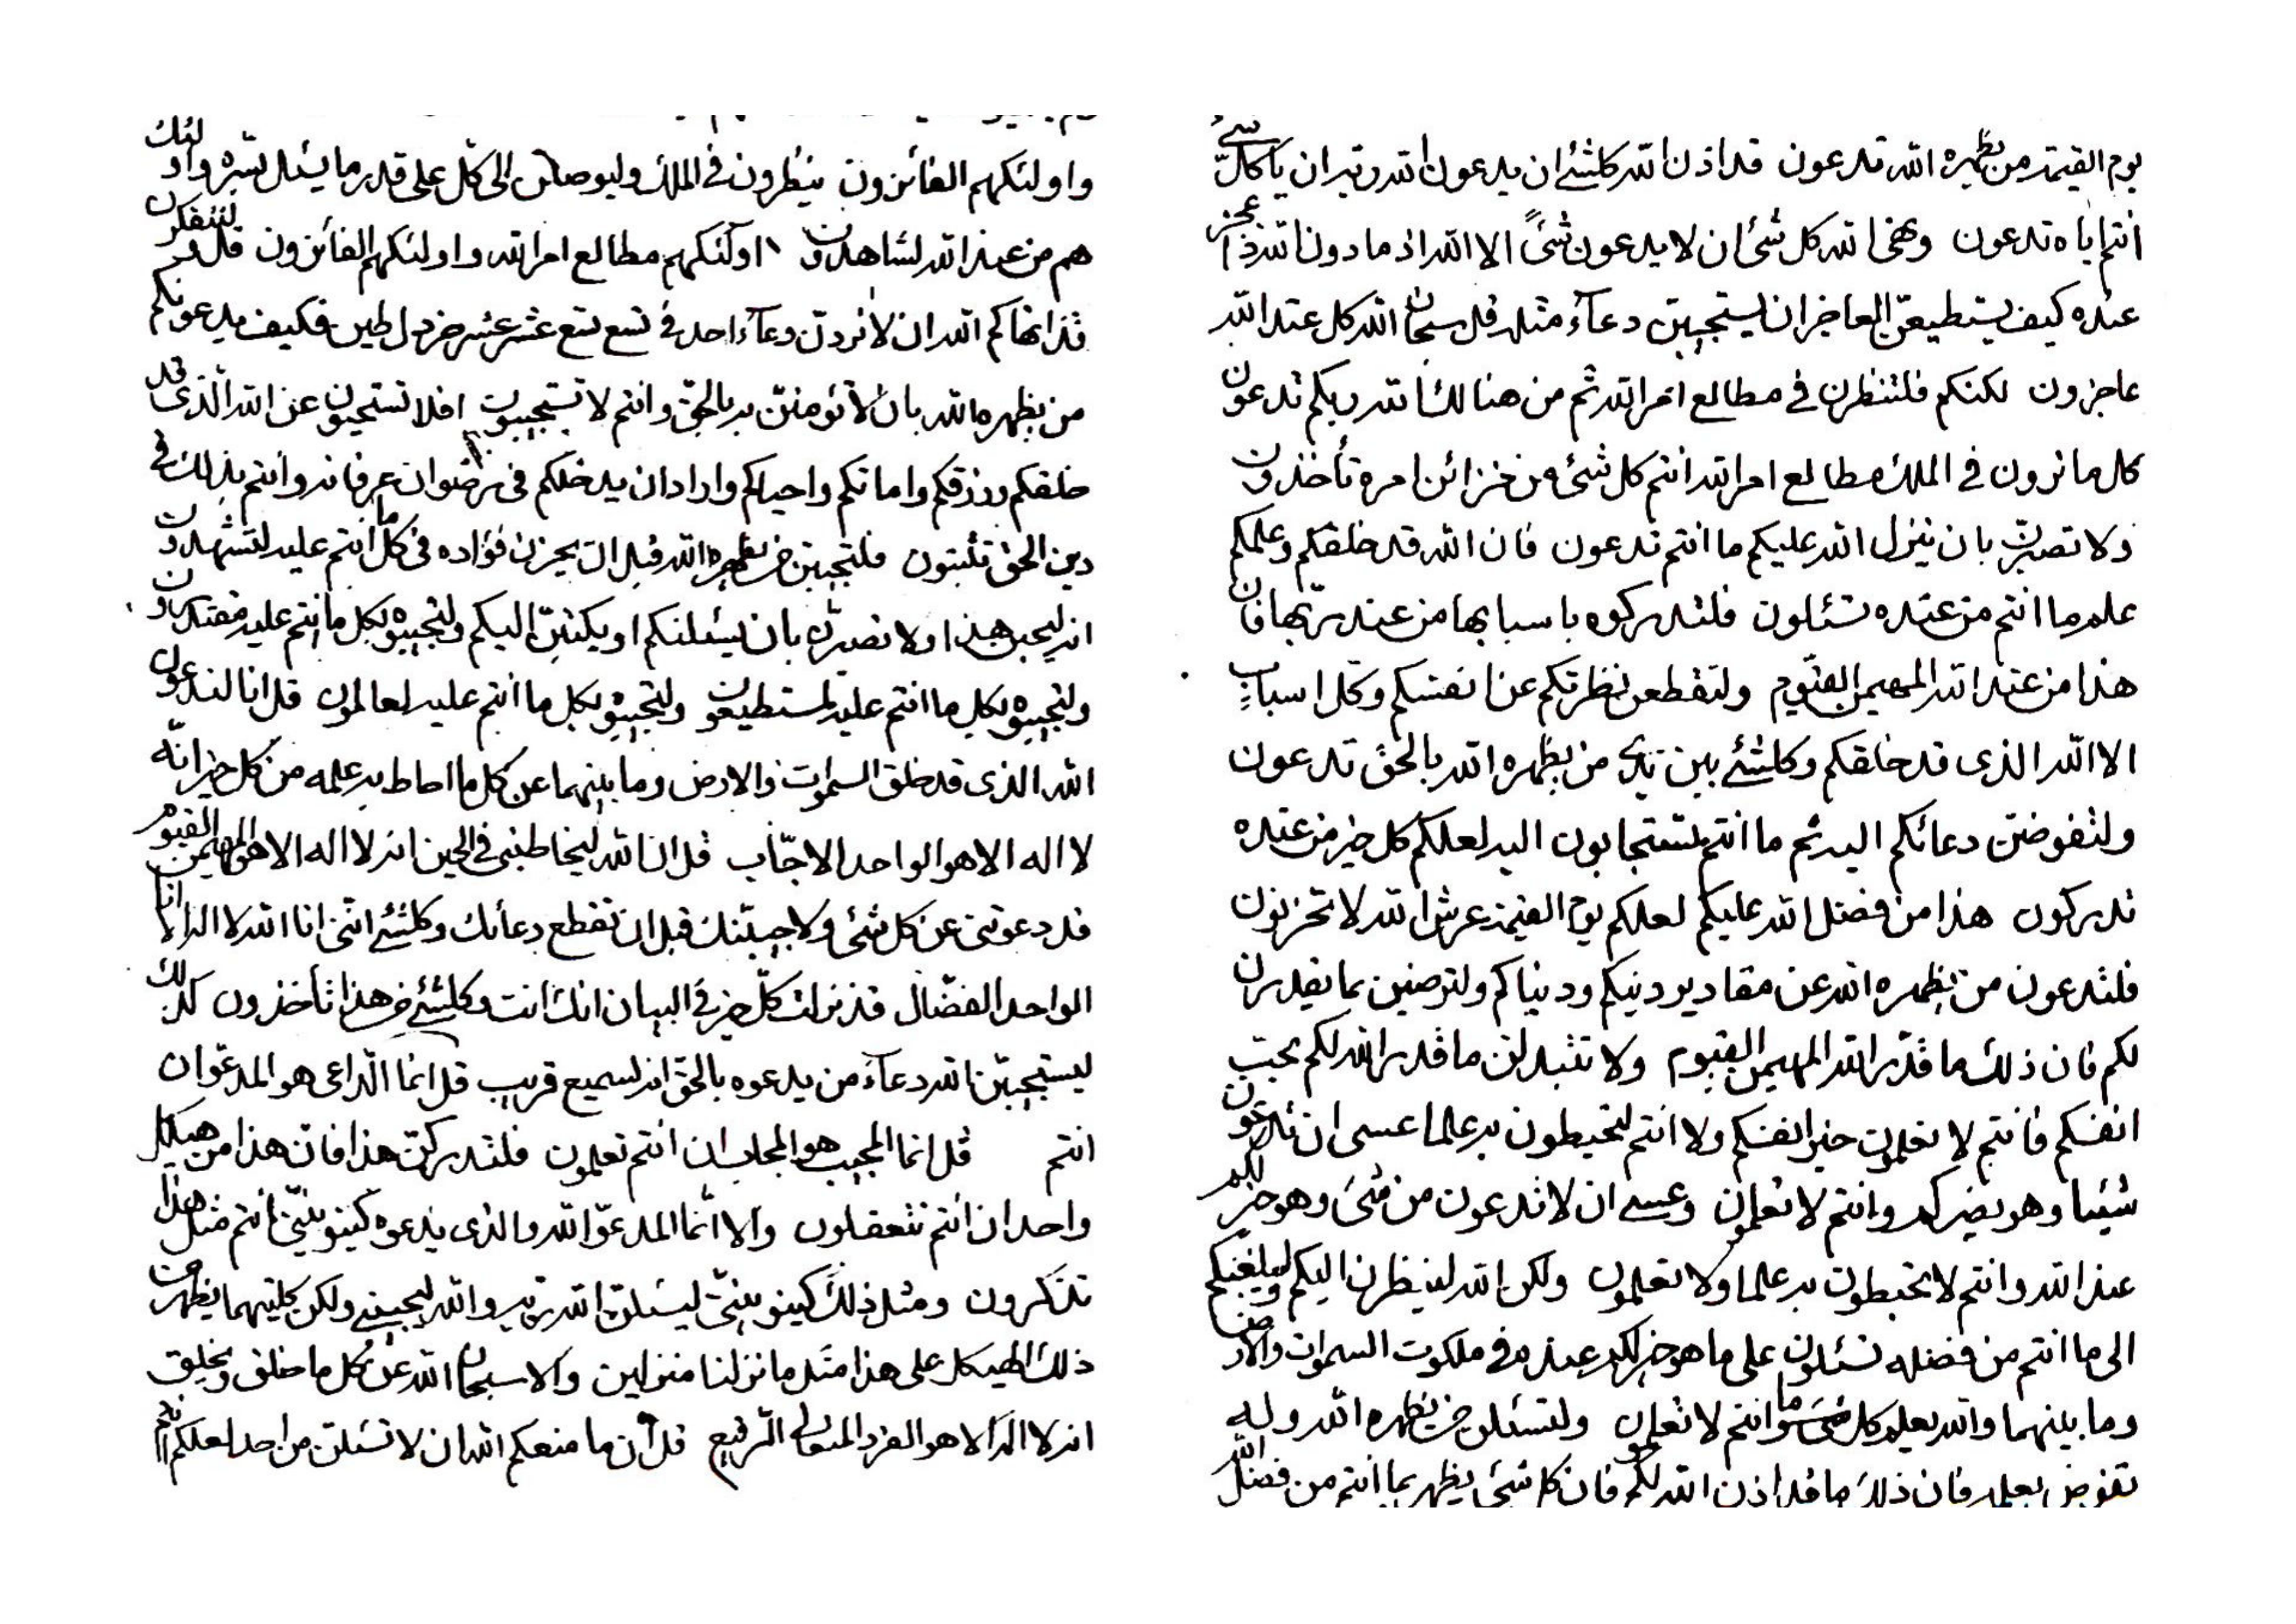 يوم القيمة من يظهره الله تدعون قد اذن الله كلشئ ان يدعون الله ربه ان يا كل شئ
انتم اياه تدعون ونهى الله كل شئ ان لا يدعون شئ الا الله اذ ما دون الله ذا عجز
عنده كيف يستطيعن العاجز ان يستجيبن دعاء مثله قل سبحان الله كل عند الله
عاجزون لكنكم فلتنظرن في مطالع امر الله ثم من هنالك الله ربكم تدعون
كل ما ترون في الملك مطالع امر الله انتم كل شئ من خزائن امره تأخذون
ولا تصبرن بان ينزل الله عليكم ما انتم تدعون فان الله قد خلقكم وعلمكم
علم ما انتم من عنده تسئلون فلتدركوه باسبابها من عند ربها فان
هذا من عند الله المهيمن القيوم ولتقطعن نظرتكم عن انفسكم وكل اسباب
الا الله الذى قد خلقكم وكلشئ بين يدى من يظهره الله بالحق تدعون
ولتفوضن دعائكم اليه ثم ما انتم لتستجابون اليه لعلكم كل خير من عنده
تدركون هذا من فضل الله عليكم لعلكم يوم القيمة عرش الله لا تحزنون
فلتدعون من يظهره الله عن مقادير دينكم ودنياكم ولترضين بما يقدرن
لكم فان ذلك ما قدر الله المهيمن القيوم ولا تتبدلن ما قدر الله لكم بحب
انفسكم فانتم لا تعلمون خير انفسكم ولا انتم لتحيطون به علما عسى ان تدعون
شيئا وهو يضركم وانتم لا تعلمون وعسى ان لا تدعون من شئ وهو خير لكم
عند الله وانتم لا تحيطون به علما ولا تعلمون ولكن الله لينظرن اليكم وليبلغنكم
الى ما انتم من فضله تسئلون على ما هو خير لكم عند الله في ملكوت السموات والارض
وما بينهما والله يعلم كل شئ وانتم لا تعلمون ولتسئلن من يظهره الله وليه
تفوض بعلمه فان ذلك ما قد اذن الله لكم فان كل شئ يظهر بما انتم من فضل الله
واولئكهم الفائزون ينظرون في الملك وليوصلن الى كل على قدر ما يسئل بسره واولئك
هم من عند الله لشاهدون اولئكهم مطالع امر الله واولئكهم الفائزون قل ولتتفكرن
قد انهاكم الله ان لا تردن دعاء احد في تسع تسع عشر عشر خردل طين فكيف يدعونكم
من يظهره الله بان لا تؤمنن به بالحق وانتم لا تستجيبون افلا تستحيون عن الله الذى قد
خلقكم ورزقكم واماتكم واحياكم واراد ان يدخلكم في رضوان عرفانه وانتم بذلك في
دين الحق تثبتون فلتجيبن من يظهره الله قبل ان يحزن فؤاده في كل ما انتم عليه لتشهدون
انه ليحب هذا ولا تصبرن بان يسئلنكم او يكتبن اليكم ولتجيبوه بكل ما انتم عليه مقتدرون
ولتجيبوه بكل ما انتم عليه لمستطيعون ولتجيبوه بكل ما انتم عليه لعالمون قل انا لندعون
الله الذى قد خلق السموات والارض وما بينهما عن كل ما احاط به علمه من كل خير انه
لا اله الا هو الواحد الاجاب قل ان الله ليخاطبنى في الحين انه لا اله الا هو المهيمن القيوم
قد دعوتنى عن كل شئ ولاجيبنك قبل ان تقطع دعائك وكلشئ اننى انا الله لا اله الا انا
الواحد الفضال قد نزلت كل خير في البيان انك انت وكلشئ من هذا تأخذون كذلك
ليستجيبن الله دعاء من يدعوه بالحق انه لسميع قريب قل انما الداعى هو المدعو ان
انتم قل انما المجيب هو المجاب ان انتم تعلمون فلتدركن هذا فان هذا من هيكل
واحد ان انتم تتعقلون والا انما المدعو الله والذى يدعوه كينونيتى انتم مثل هذا
تذكرون ومثل ذلك كينونيتى ليسئلن الله ربه والله ليجيبنى ولكن كليهما يظهرن من
ذلك الهيكل على هذا مثل ما نزلنا منزلين والا سبحان الله عن كل ما خلق ويخلق
انه لا اله الا هو الفرد المتعالى الرفيع قل ان ما منعكم الله ان لا تسئلن من احد لعلكم